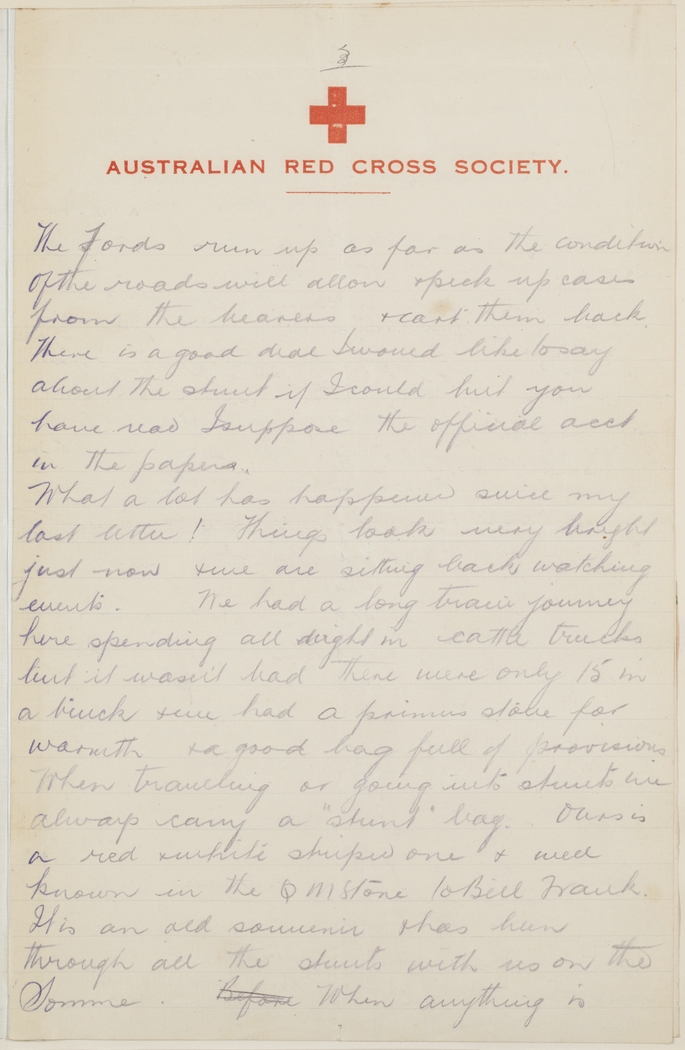 3
AUSTRALIAN RED CROSS SOCIETY.
The Fords run up as far as the condition
of the roads will allow & pick up cases
from the bearers & cart them back.
There is a good deal I would like to say
about the stunt if I could but you
have read I suppose the official acct
in the papers.
What a lot has happened since my
last letter! Things look very bright
just now & we are sitting back watching
events. We had a long train journey
here spending all night in cattle trucks
but it wasn't bad there were only 15 in
a truck & we had a primus stove for
warmth & a good bag full of provisions
When travelling or going into stunts we
always carry a "stunt" bag. Ours is
a red & white striped one & well
known in the Q M Store to Bill Frank.
It is an old souvenir & has been
through all the stunts with us on the
Somme. Before When anything is